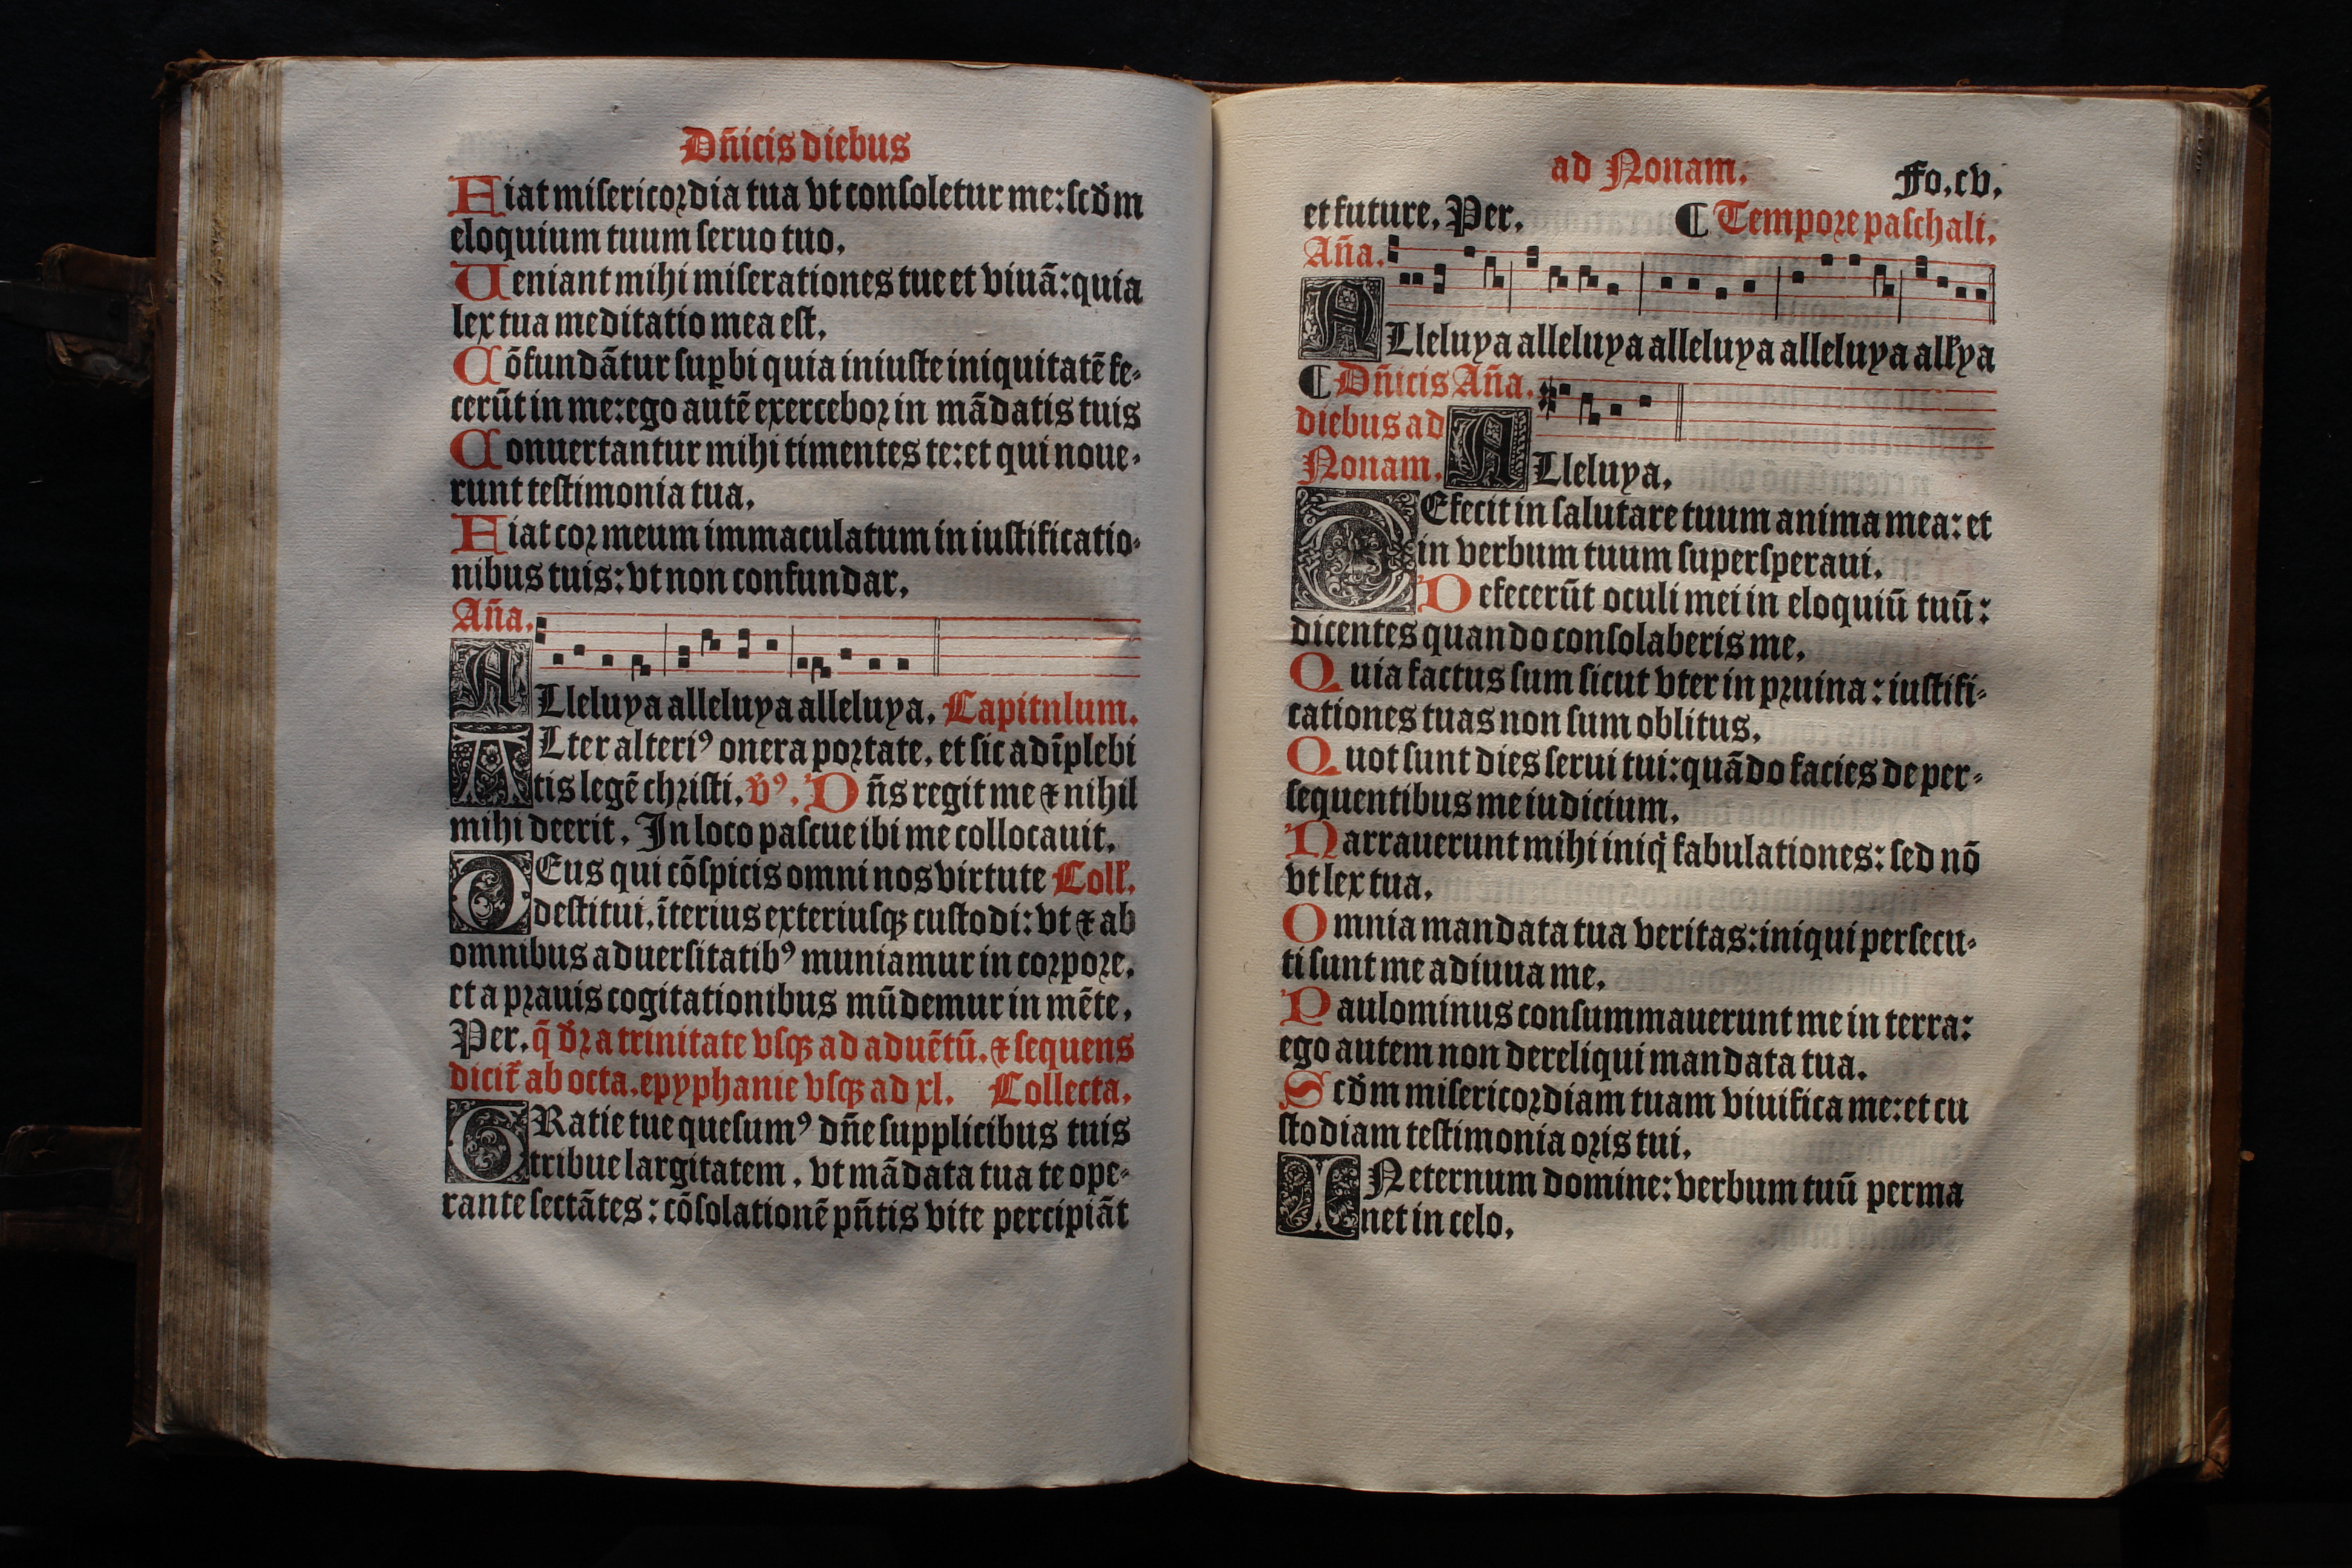 Dñicis diebus
Fiat misericordia tua vt consoletur me: scd̄m
eloquium tuum seruo tuo.
Ueniant mihi miserationes tue et viuā: quia
lex tua meditatio mea est.
Cōfundātur supbi quia iniuste iniquitatē fe-
cerūt in me: ego autē exercebor in mādatis tuis
Conuertantur mihi timentes te: et qui noue-
runt testimonia tua.
Fiat cor meum immaculatum in iustificatio-
nibus tuis: vt non confundar.
Aña.
ALleluya alleluya alleluya. Capitulum.
ALter alteriꝰ onera portate. et sic adīplebi
tis legē christi. v̄ꝰ. Dñs regit me ⁊ nihil
mihi deerit. In loco pascue ibi me collocauit.
DEus qui cōspicis omni nos virtute Coll̄.
destitui. īterius exteriusqꝫ custodi: vt ⁊ ab
omnibus aduersitatibꝰ muniamur in corpore.
et a prauis cogitationibus mūdemur in mēte.
Per. q̄ d̄r a trinitate vsqꝫ ad aduētū. ⁊ sequens
dicit̄ ab octa. epyphanie vsqꝫ ad xl. Collecta.
GRatie tue quesumꝰ dñe supplicibus tuis
tribue largitatem. vt mādata tua te ope-
rante sectātes: cōsolationē pñtis vite percipiāt
ad Nonam. Fo. cv.
et future. Per. ¶ Tempore paschali.
Aña.
ALleluya alleluya alleluya alleluya all̄ya
¶ Dñicis Aña.
diebus ad
Nonam. ALleluya.
DEfecit in salutare tuum anima mea: et
in verbum tuum supersperaui.
Defecerūt oculi mei in eloquiū tuū:
dicentes quando consolaberis me.
Quia factus sum sicut vter in pruina: iustifi-
cationes tuas non sum oblitus.
Quot sunt dies serui tui: quādo facies de per-
sequentibus me iudicium.
Narrauerunt mihi iniq̇ fabulationes: sed nō
vt lex tua.
Omnia mandata tua veritas: iniqui persecu-
ti sunt me adiuua me.
Paulominus consummauerunt me in terra:
ego autem non dereliqui mandata tua.
Scd̄m misericordiam tuam viuifica me: et cu
stodiam testimonia oris tui.
IN eternum domine: verbum tuū perma
net in celo.